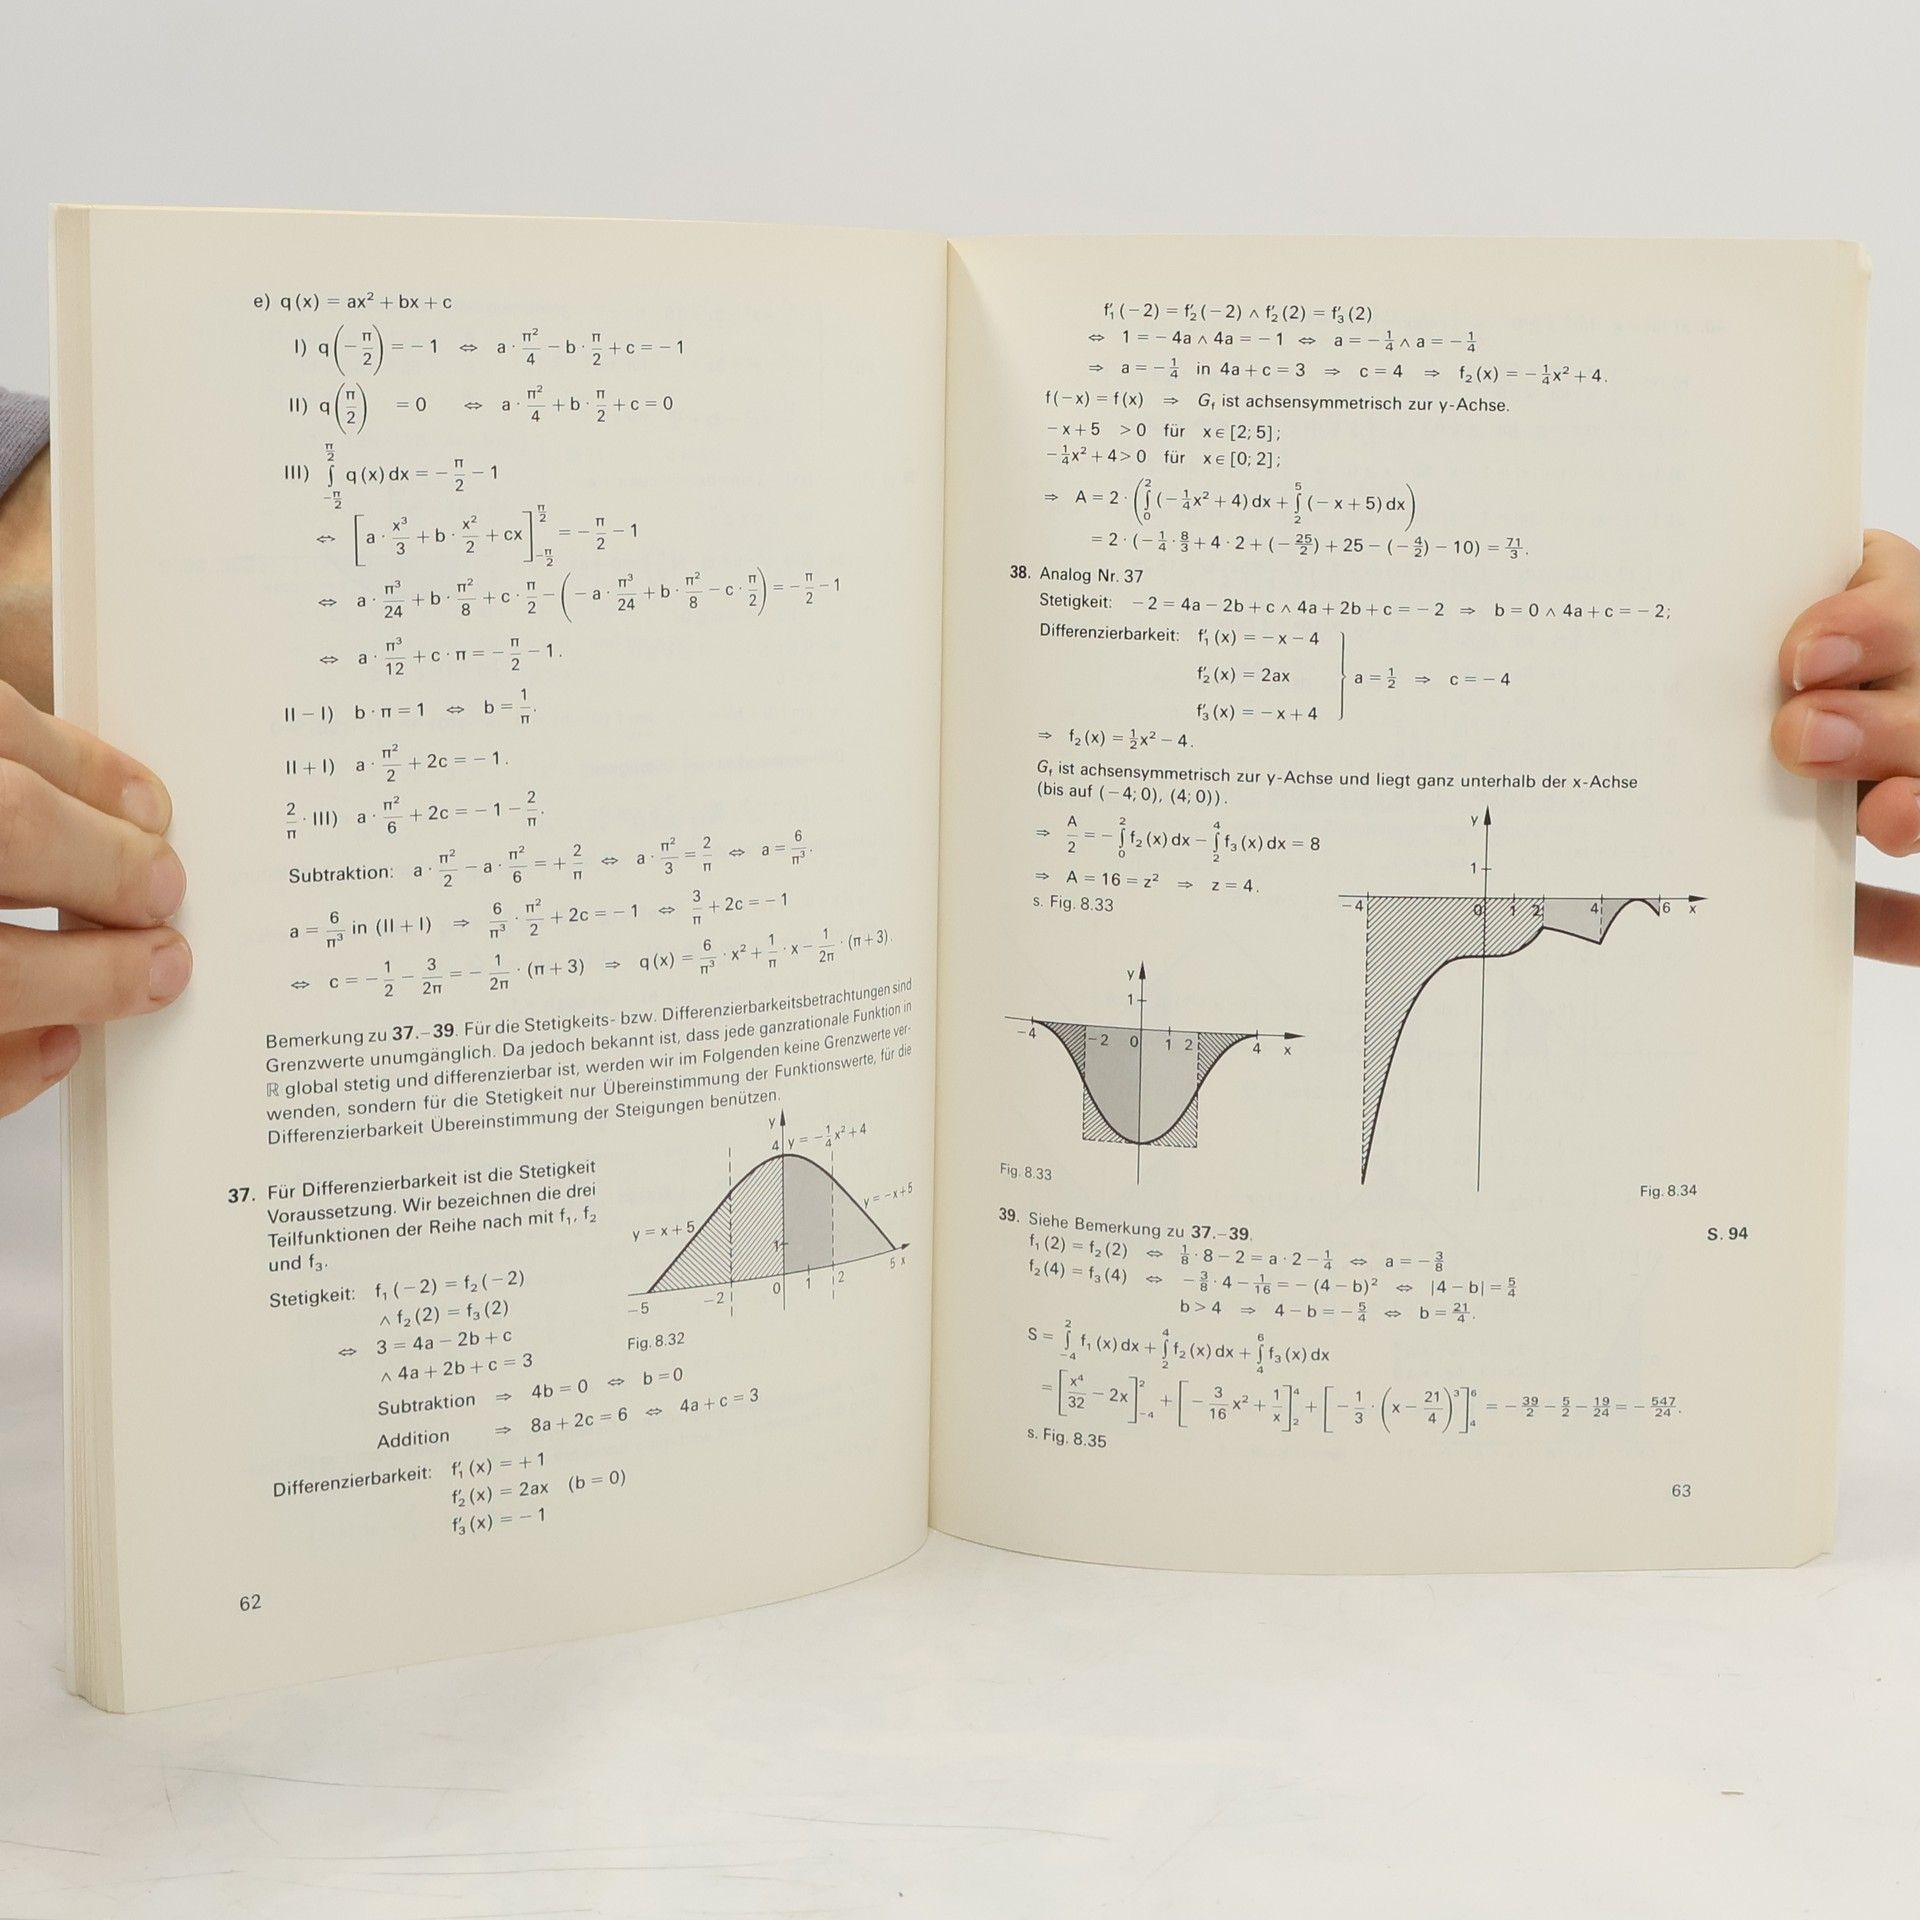 e) q(x) = ax² + bx + c
I) q(−π/2) = −1 ⇔ a · π²/4 − b · π/2 + c = −1
II) q(π/2) = 0 ⇔ a · π²/4 + b · π/2 + c = 0
III) ∫_{−π/2}^{π/2} q(x) dx = −π/2 − 1
⇔ [a · x³/3 + b · x²/2 + cx]_{−π/2}^{π/2} = −π/2 − 1
⇔ a · π³/24 + b · π²/8 + c · π/2 − (−a · π³/24 + b · π²/8 − c · π/2) = −π/2 − 1
⇔ a · π³/12 + c · π = −π/2 − 1.
II − I) b · π = 1 ⇔ b = 1/π.
II + I) a · π²/2 + 2c = −1.
2/π · III) a · π²/6 + 2c = −1 − 2/π.
Subtraktion: a · π²/2 − a · π²/6 = +2/π ⇔ a · π²/3 = 2/π ⇔ a = 6/π³.
a = 6/π³ in (II + I) ⇒ 6/π³ · π²/2 + 2c = −1 ⇔ 3/π + 2c = −1
⇔ c = −1/2 − 3/2π = −1/2π · (π + 3) ⇒ q(x) = 6/π³ · x² + 1/π · x − 1/2π · (π + 3).
Bemerkung zu 37.–39. Für die Stetigkeits- bzw. Differenzierbarkeitsbetrachtungen sind
Grenzwerte unumgänglich. Da jedoch bekannt ist, dass jede ganzrationale Funktion in
ℝ global stetig und differenzierbar ist, werden wir im Folgenden keine Grenzwerte ver-
wenden, sondern für die Stetigkeit nur Übereinstimmung der Funktionswerte, für die
Differenzierbarkeit Übereinstimmung der Steigungen benützen.
37. Für Differenzierbarkeit ist die Stetigkeit
Voraussetzung. Wir bezeichnen die drei
Teilfunktionen der Reihe nach mit f₁, f₂
und f₃.
Stetigkeit: f₁(−2) = f₂(−2)
∧ f₂(2) = f₃(2)
⇔ 3 = 4a − 2b + c
∧ 4a + 2b + c = 3
Subtraktion ⇒ 4b = 0 ⇔ b = 0
Addition ⇒ 8a + 2c = 6 ⇔ 4a + c = 3
Differenzierbarkeit: f′₁(x) = +1
f′₂(x) = 2ax (b = 0)
f′₃(x) = −1
y
4 y = −¼x² + 4
y = x + 5
y = −x + 5
1
−5 −2 0 1 2 5 x
Fig. 8.32
62
f′₁(−2) = f′₂(−2) ∧ f′₂(2) = f′₃(2)
⇔ 1 = −4a ∧ 4a = −1 ⇔ a = −¼ ∧ a = −¼
⇒ a = −¼ in 4a + c = 3 ⇒ c = 4 ⇒ f₂(x) = −¼x² + 4.
f(−x) = f(x) ⇒ G_f ist achsensymmetrisch zur y-Achse.
−x + 5 > 0 für x ∈ [2; 5];
−¼x² + 4 > 0 für x ∈ [0; 2];
⇒ A = 2 · (∫₀² (−¼x² + 4) dx + ∫₂⁵ (−x + 5) dx)
= 2 · (−¼ · 8/3 + 4 · 2 + (−25/2) + 25 − (−4/2) − 10) = 71/3.
38. Analog Nr. 37
Stetigkeit: −2 = 4a − 2b + c ∧ 4a + 2b + c = −2 ⇒ b = 0 ∧ 4a + c = −2;
Differenzierbarkeit: f′₁(x) = −x − 4
f′₂(x) = 2ax } a = ½ ⇒ c = −4
f′₃(x) = −x + 4
⇒ f₂(x) = ½x² − 4.
G_f ist achsensymmetrisch zur y-Achse und liegt ganz unterhalb der x-Achse
(bis auf (−4; 0), (4; 0)).
⇒ A/2 = −∫₀² f₂(x) dx − ∫₂⁴ f₃(x) dx = 8
⇒ A = 16 = z² ⇒ z = 4.
s. Fig. 8.33
y
1
−4 −2 0 1 2 4 x
Fig. 8.33
y
1
−4 0 1 2 4 6 x
Fig. 8.34
39. Siehe Bemerkung zu 37.–39.
S. 94
f₁(2) = f₂(2) ⇔ ⅛ · 8 − 2 = a · 2 − ¼ ⇔ a = −⅜
f₂(4) = f₃(4) ⇔ −⅜ · 4 − 1/16 = −(4 − b)² ⇔ |4 − b| = 5/4
b > 4 ⇒ 4 − b = −5/4 ⇔ b = 21/4.
S = ∫_{−4}^{2} f₁(x) dx + ∫₂⁴ f₂(x) dx + ∫₄⁶ f₃(x) dx
= [x⁴/32 − 2x]_{−4}^{2} + [−3/16 x² + 1/x]₂⁴ + [−1/3 · (x − 21/4)³]₄⁶ = −39/2 − 5/2 − 19/24 = −547/24.
s. Fig. 8.35
63